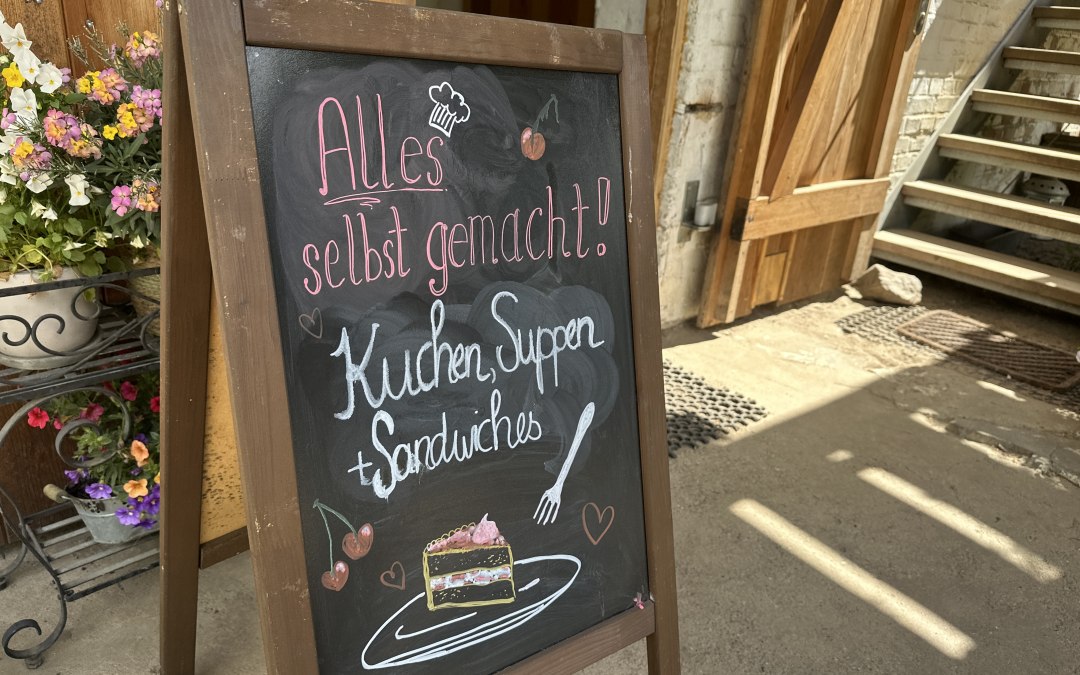 Alles
selbst gemacht!
Kuchen, Suppen
+ Sandwiches